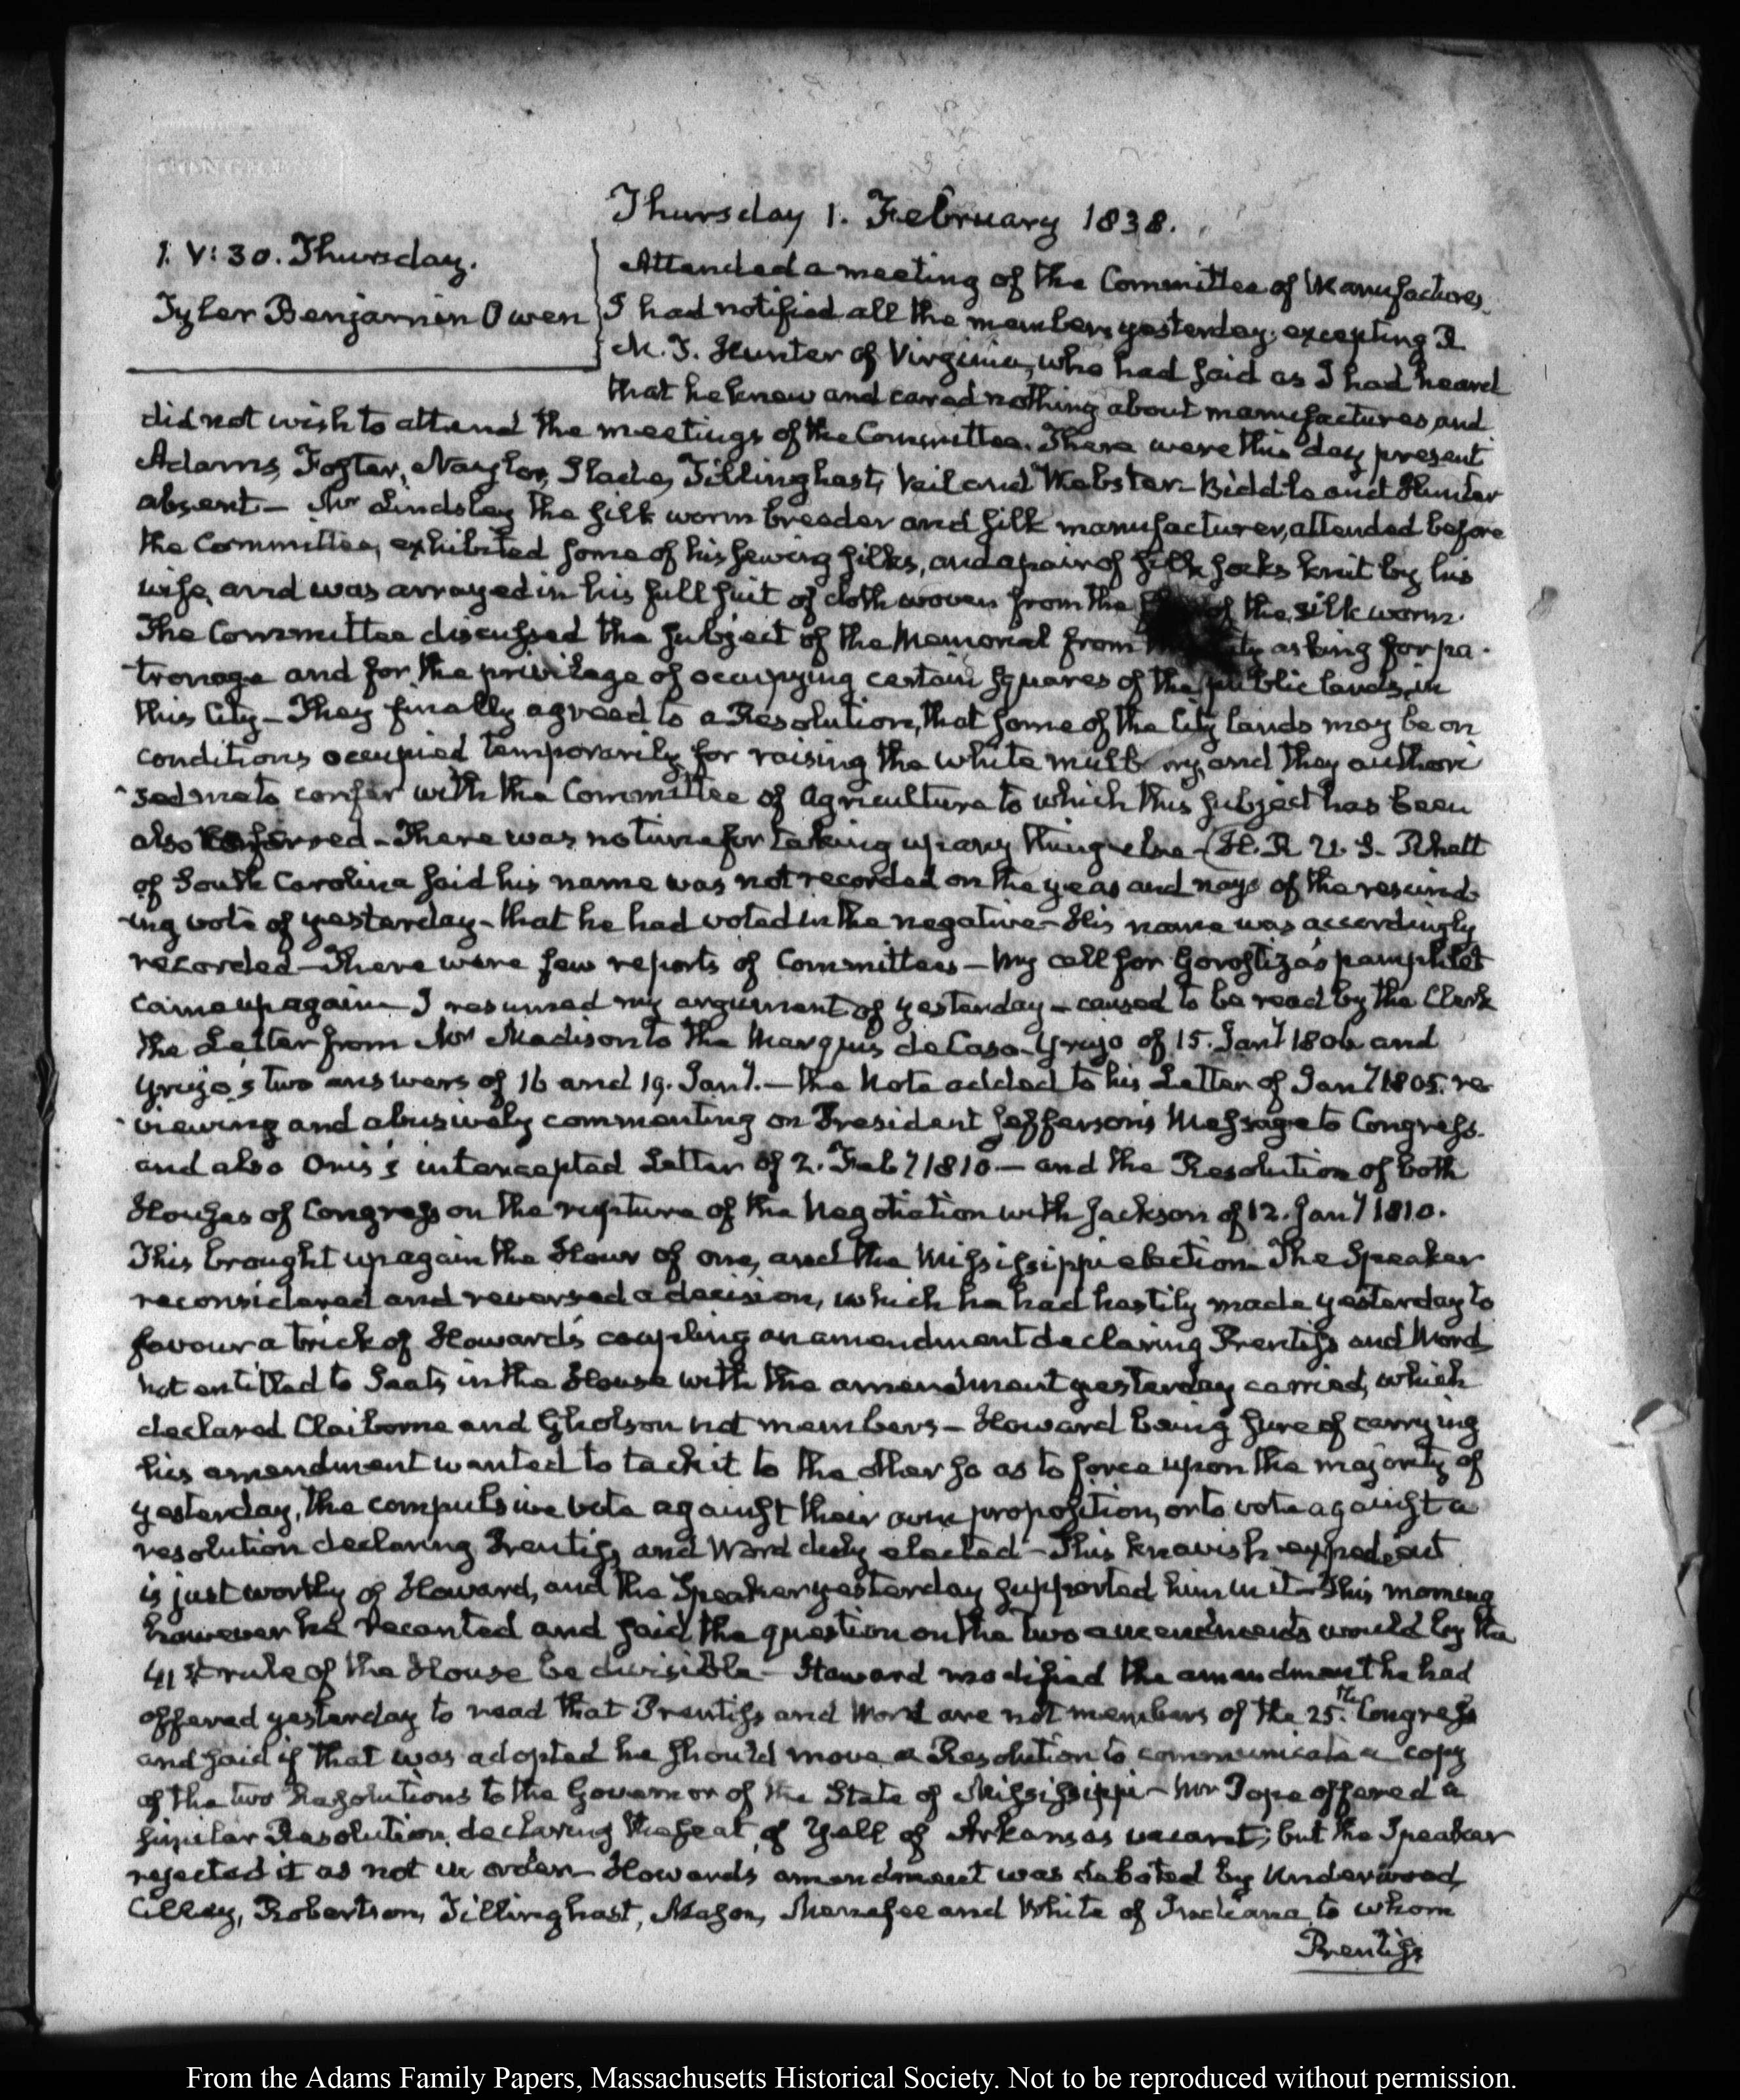 CONGRESS
Thursday 1. February 1838.
1. V: 30. Thursday.
Tyler Benjamin Owen
Attended a meeting of the Committee of Manufactures.
I had notified all the members yesterday, excepting R
M. T. Hunter of Virginia, who had said as I had heard
that he knew and cared nothing about manufactures, and
did not wish to attend the meetings of the Committee. There were this day present
Adams, Foster, Naylor, Slade, Tillinghast, Vail and Webster—Biddle and Hunter
absent—Mr Lindsley the silk worm breeder and silk manufacturer, attended before
the Committee, exhibited some of his sewing silks, and a pair of silk socks knit by his
wife, and was arrayed in his full suit of cloth woven from the of the silk worm.
The Committee discussed the subject of the Memorial from asking for pa-
tronage and for the privilege of occupying certain squares of the public lands, in
this City—They finally agreed to a Resolution, that some of the City lands may be on
conditions occupied temporarily for raising the white mulberry, and they authori
-sed me to confer with the Committee of Agriculture to which this subject has been
also referred—There was no time for taking up any thing else—H. R. U. S. Rhett
of South Carolina said his name was not recorded on the yeas and nays of the rescind-
-ing vote of yesterday—that he had voted in the negative—His name was accordingly
recorded—There were few reports of Committees—My call for Gorostiza's pamphlet
came up again—I resumed my argument of yesterday—caused to be read by the Clerk
the Letter from Mr Madison to the Marquis de Casa-Yrujo of 15. Jany 1806 and
Yrujo's two answers of 16 and 19. Jany.—the Note added to his Letter of Jany 1805. re
-viewing and abusively commenting on President Jefferson's Message to Congress.
and also Onis's intercepted Letter of 2. Feby 1810—and the Resolution of both
Houses of Congress on the rupture of the Negotiation with Jackson of 12. Jany 1810.
This brought up again the Hour of one, and the Mississippi election. The Speaker
reconsidered and reversed a decision, which he had hastily made yesterday to
favour a trick of Howard's coupling an amendment declaring Prentiss and Word
not entitled to Seats in the House with the amendment yesterday carried, which
declared Claiborne and Gholson not members—Howard being sure of carrying
his amendment wanted to tack it to the other so as to force upon the majority of
yesterday, the compulsive vote against their own proposition, or to vote against a
resolution declaring Prentiss and Word duly elected—This knavish expedient
is just worthy of Howard, and the Speaker yesterday supported him in it—This morning
however he recanted and said the question on the two amendments would by the
41st rule of the House be divisible—Howard modified the amendment he had
offered yesterday to read that Prentiss and Word are not members of the 25.th Congress
and said if that was adopted he should move a Resolution to communicate a copy
of the two Resolutions to the Governor of the State of Mississippi—Mr Pope offered a
similar Resolution, declaring the seat of Yell of Arkansas vacant; but the Speaker
rejected it as not in order—Howards amendment was debated by Underwood,
Cilley, Robertson, Tillinghast, Mason, Menefee and White of Indiana, to whom
Prentiss
From the Adams Family Papers, Massachusetts Historical Society. Not to be reproduced without permission.